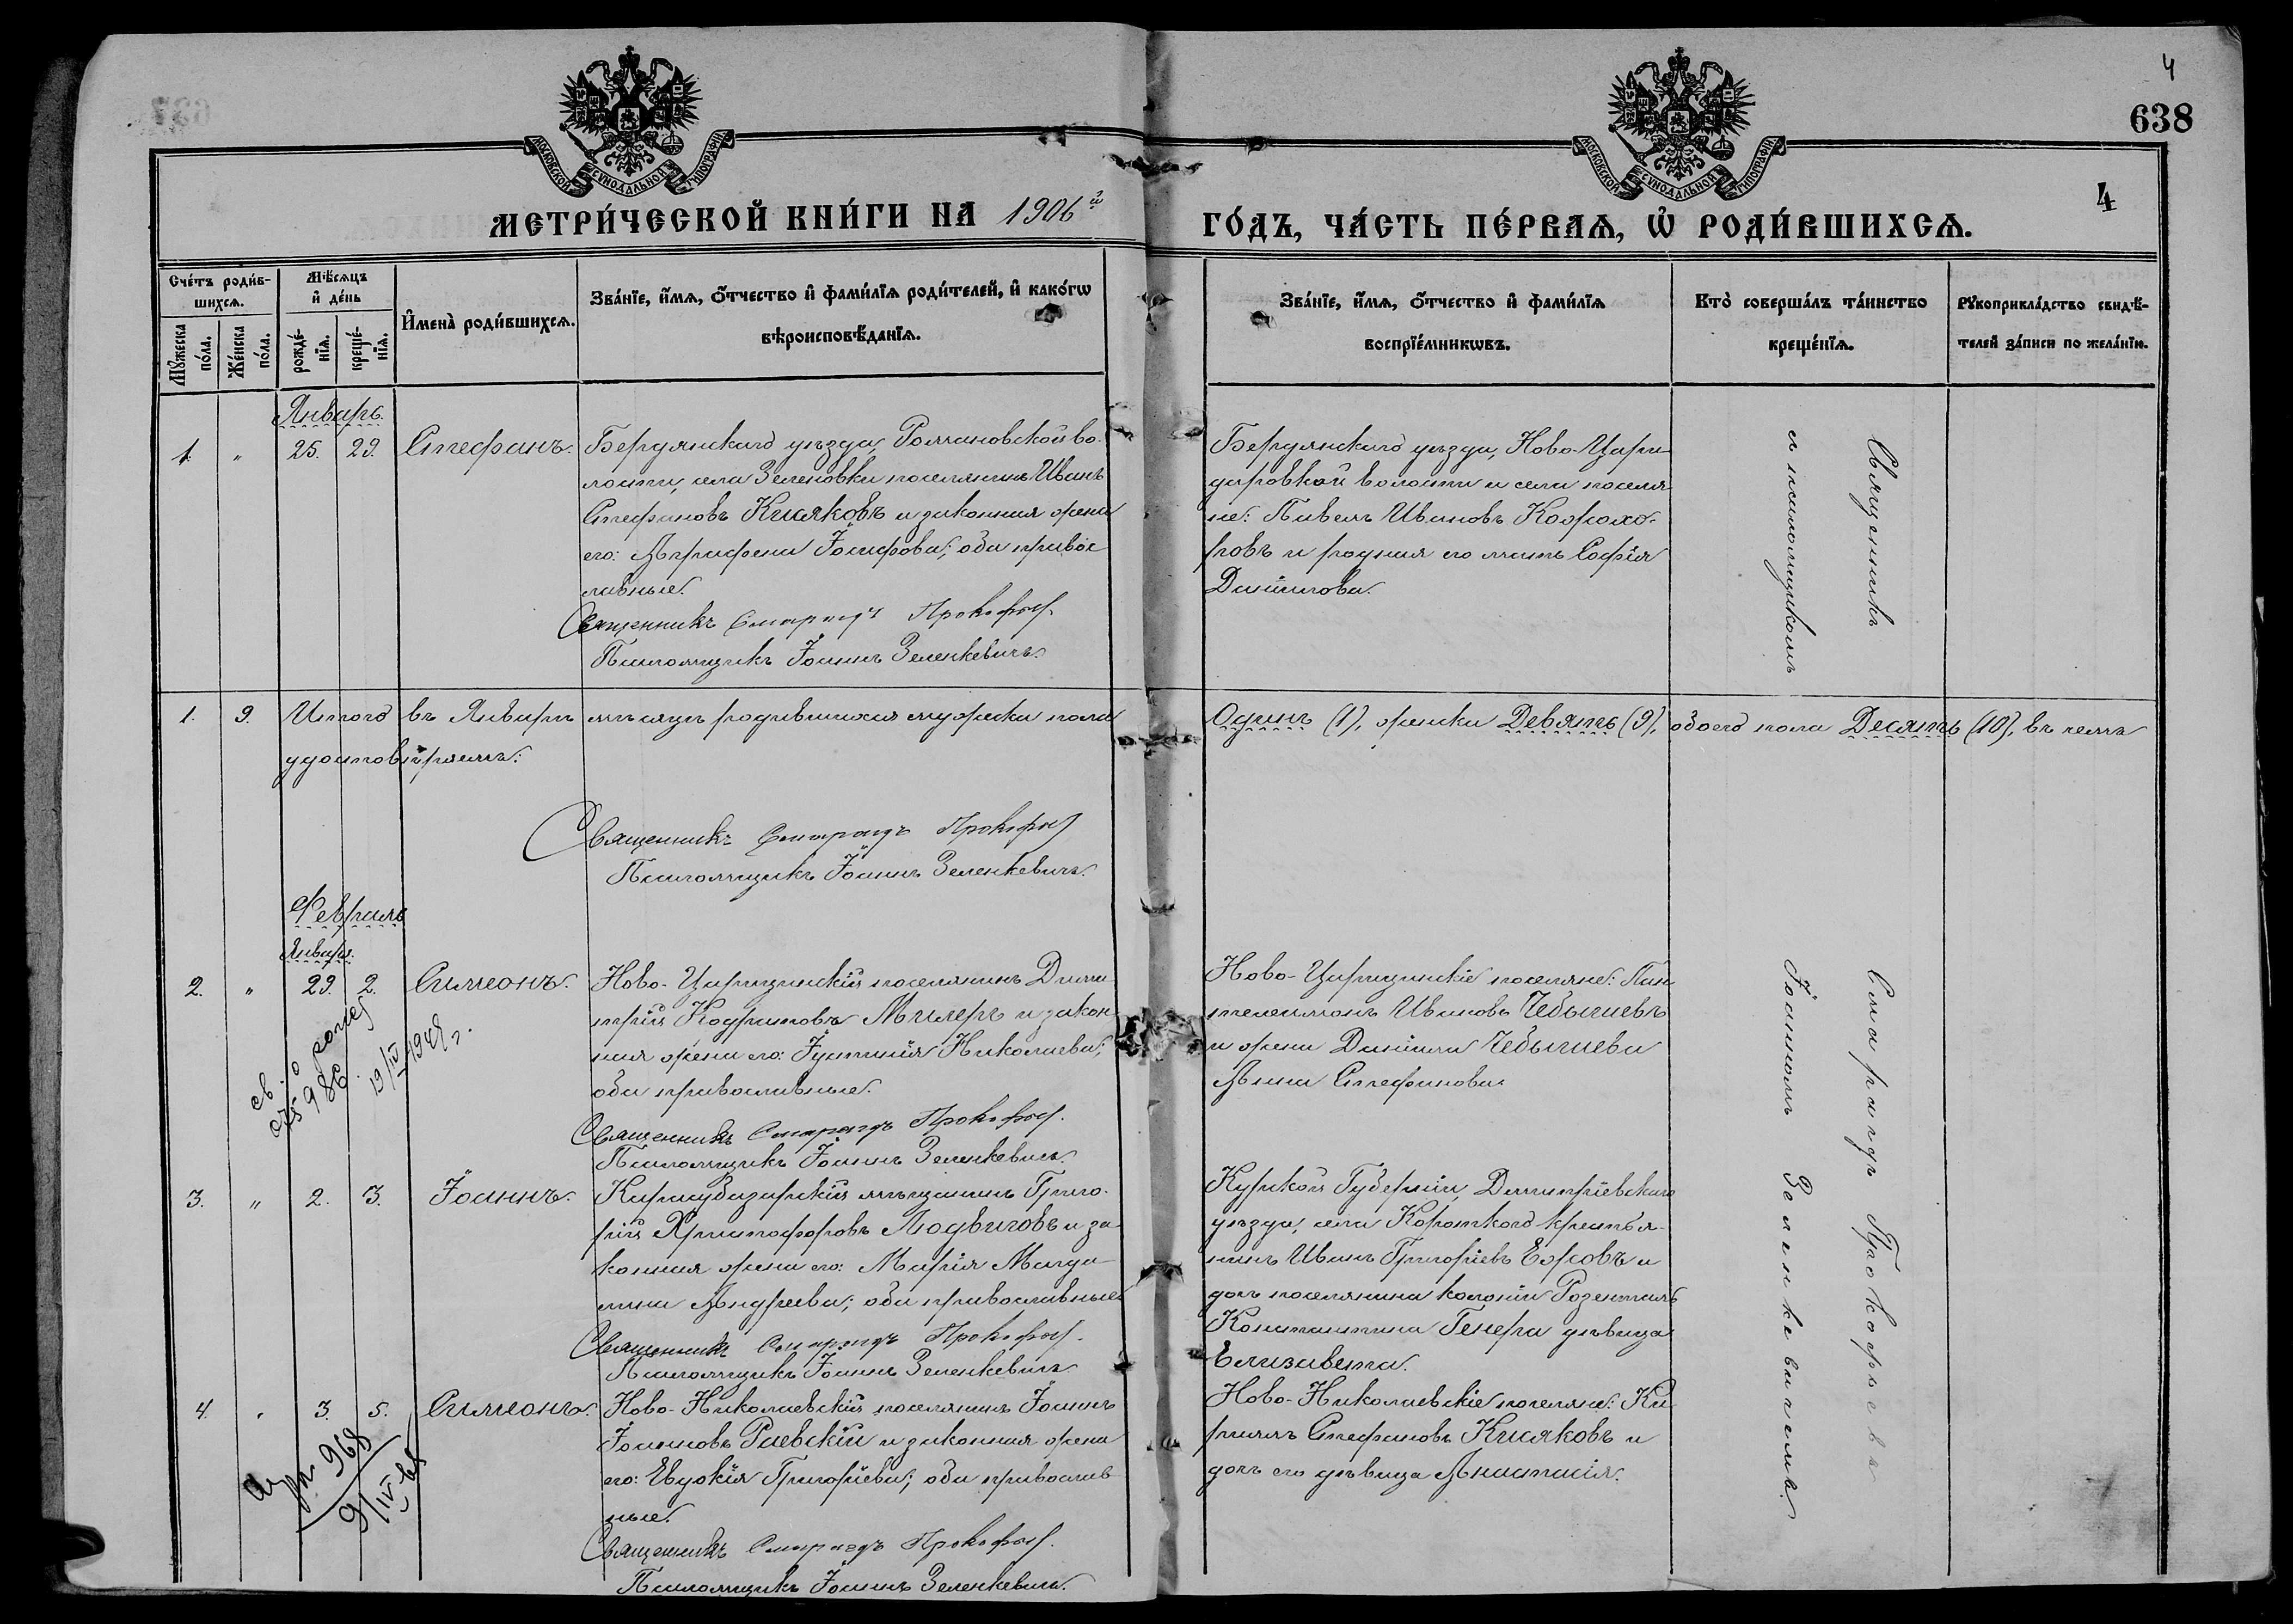 4
638
4
МОСКОВСКОЙ СѴНОДАЛЬНОЙ ТИПОГРАФІИ
МОСКОВСКОЙ СѴНОДАЛЬНОЙ ТИПОГРАФІИ
МЕТРИ́ЧЕСКОЙ КНИ́ГИ НА 1906й
ГО́ДЪ, ЧА́СТЬ ПЕ́РВАѦ, Ѡ҆ РОДИ́ВШИХСѦ.
Сче́тъ роди́в-
шихсѧ.
Мꙋ́жеска по́ла.
Же́нска по́ла.
Мѣ́сѧцъ
и҆ де́нь
рожде́-
нїѧ.
креще́-
нїѧ.
И҆мена̀ роди́вшихсѧ.
Зва́нїе, и҆́мѧ, ѻ҆́тчество и҆ фами́лїѧ роди́телей, и҆ како́гѡ
вѣроисповѣ́данїѧ.
Зва́нїе, и҆́мѧ, ѻ҆́тчество и҆ фами́лїѧ
воспрїе́мникѡвъ.
Кто̀ соверша́лъ та́инство
креще́нїѧ.
Рꙋкоприкла́дство свидѣ́-
телей за́писи по жела́нїю.
Январь.
1. " 25. 29. Стефанъ.
Бердянскаго уѣзда, Романовской во-
лости, села Зеленовки поселянинъ Иванъ
Стефановъ Кисяковъ и законная жена
его: Агрипфена Іосифова; оба правос
лавные.
Священникъ Смарагдъ Прокофьев.
Псаломщикъ Іоаннъ Зеленкевичъ.
Бердянскаго уѣзда, Ново-Цари-
цировкой волости и села поселя
не: Павелъ Ивановъ
и родная его мать Софія
Даніилова.
1. 9. Итого въ Январѣ мѣсяцѣ родившихся мужеска пола
Одинъ (1), женска Девять (9), обоего пола Десять (10), въ чемъ
удостовѣряемъ:
Священникъ Смарагдъ Прокофьев
Псаломщикъ Іоаннъ Зеленкевичъ.
Февраль
Января.
2. " 29. 2. Симеонъ.
Ново-Царицинскій поселянинъ Дими
трій Кодратовъ Милеръ и закон
ная жена его: Іустинія Николаева;
оба православные.
Священникъ Смарагдъ Прокофьев.
Псаломщикъ Іоаннъ Зеленкевичъ.
Ново-Царицинскіе поселяне: Пан
телеимонъ Ивановъ Чебычиевъ
и жена Даніила Чебычиева
Анна Стефанова.
св. о рожд
986
19/IV 1949 г.
3. " 2. 3. Іоаннъ.
Карасубазарскій мѣщанинъ Григо-
рій Христофоровъ Людвиговъ и за
конная жена его: Марія Магда-
лина Андреева; оба православные
Священникъ Смарагдъ Прокофьев.
Псаломщикъ Іоаннъ Зеленкевичъ
Курской Губерніи, Димитріевскаго
уѣзда, села Короткого крестья-
нинъ Иванъ Григоріевъ Ежовъ и
дочь поселянина колоніи Розенталь
Константина Генера дѣвица
Елизавета.
4. " 3. 5. Симеонъ.
Ново-Николаевскій поселянинъ Іоаннъ
Іоанновъ Раевскій и законная жена
его: Евдокія Григоріева; оба православ
ные.
Священникъ Смарагдъ Прокофьев.
Псаломщикъ Іоаннъ Зеленкевичъ.
Ново-Николаевскіе поселяне: Ки
риллъ Стефановъ Кисяковъ и
дочь его дѣвица Анастасія.
968
9/IV
Священникъ Смарагдъ Прокофьевъ
съ псаломщикомъ Іоанномъ Зеленкевичемъ.